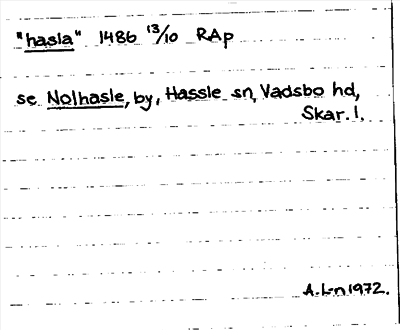 "hasla" 1486 13/10 RAp
se Nolhasle, by, Hassle sn, Vadsbo hd,
Skar. l.
A.L-n 1972.